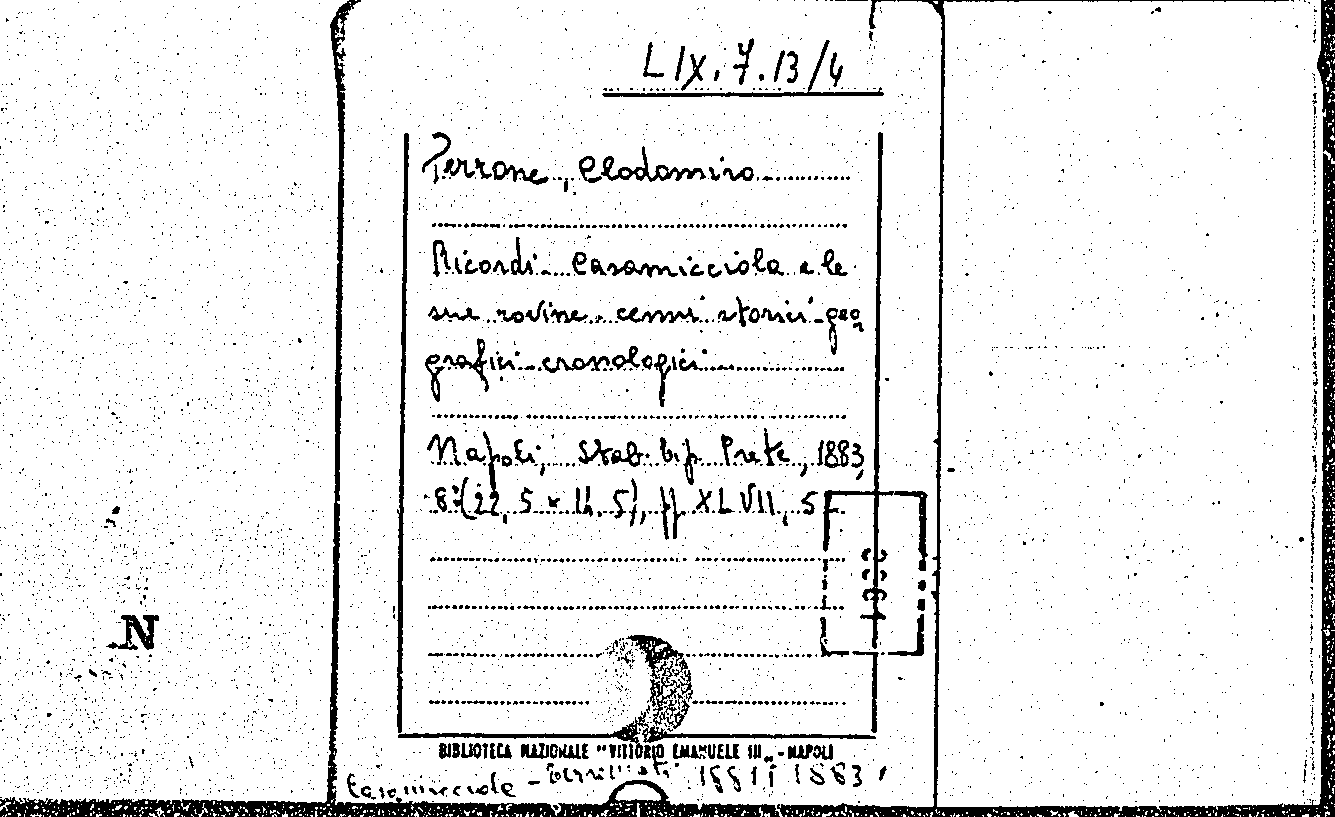 LIX.7.13/4
Perrone, Clodomiro
Ricordi. Casamicciola e le
sue rovine. cenni storici-geo
grafici-cronologici
Napoli, Stab. tip. Prete, 1883,
8°(22,5 x 14.5), pp XLVII, 5
N
BIBLIOTECA NAZIONALE "VITTORIO EMANUELE III„ - NAPOLI
Casamicciola - 1881 i 1883